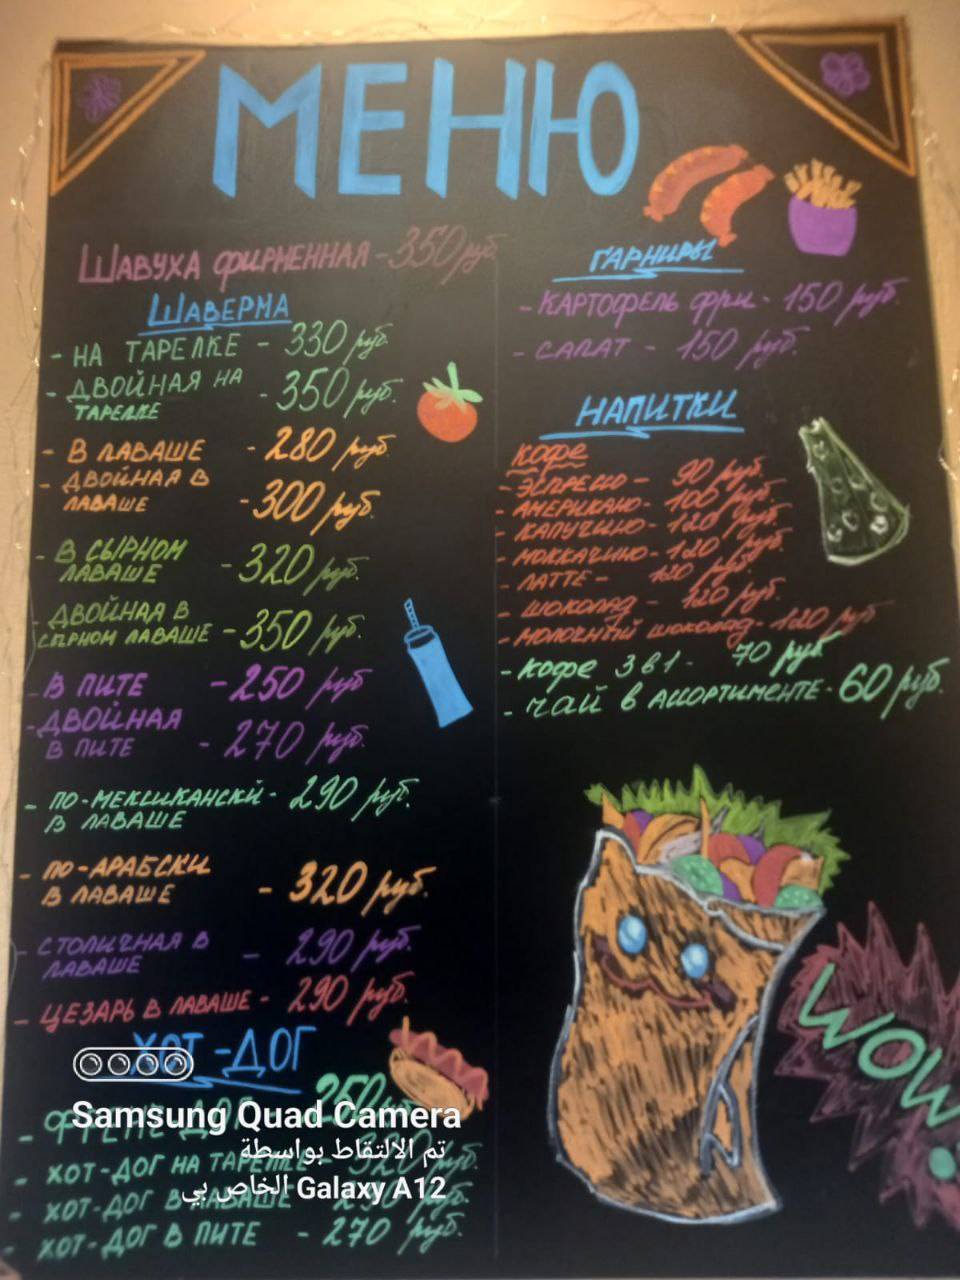 МЕНЮ
ШАВУХА ФИРМЕННАЯ - 350 руб.
ШАВЕРМА
- НА ТАРЕЛКЕ - 330 руб.
- ДВОЙНАЯ НА ТАРЕЛКЕ - 350 руб.
- В ЛАВАШЕ - 280 руб.
- ДВОЙНАЯ В ЛАВАШЕ - 300 руб.
- В СЫРНОМ ЛАВАШЕ - 320 руб.
- ДВОЙНАЯ В СЫРНОМ ЛАВАШЕ - 350 руб.
- В ПИТЕ - 250 руб
- ДВОЙНАЯ В ПИТЕ - 270 руб.
- ПО-МЕКСИКАНСКИ - 290 руб.
В ЛАВАШЕ
- ПО-АРАБСКИ
В ЛАВАШЕ - 320 руб.
- СТОЛИЧНАЯ В ЛАВАШЕ - 290 руб.
- ЦЕЗАРЬ В ЛАВАШЕ - 290 руб.
ХОТ-ДОГ
- ФРЕНЧ ДОГ 250
- ХОТ-ДОГ НА ТАРЕЛКЕ - 320 руб.
- ХОТ-ДОГ В ЛАВАШЕ руб.
- ХОТ-ДОГ В ПИТЕ - 270 руб.
ГАРНИРЫ
- КАРТОФЕЛЬ ФРИ - 150 руб.
- САЛАТ - 150 руб.
НАПИТКИ
КОФЕ
- ЭСПРЕССО - 90 руб.
- АМЕРИКАНО - 100 руб.
- КАПУЧИНО - 120 руб.
- МОККАЧИНО - 120 руб.
- ЛАТТЕ - 120 руб.
- ШОКОЛАД - 120 руб.
- МОЛОЧНЫЙ ШОКОЛАД - 120 руб
- КОФЕ 3 В 1 - 70 руб
- ЧАЙ В АССОРТИМЕНТЕ - 60 руб.
WOW!
Samsung Quad Camera
تم الالتقاط بواسطة
Galaxy A12 الخاص بي